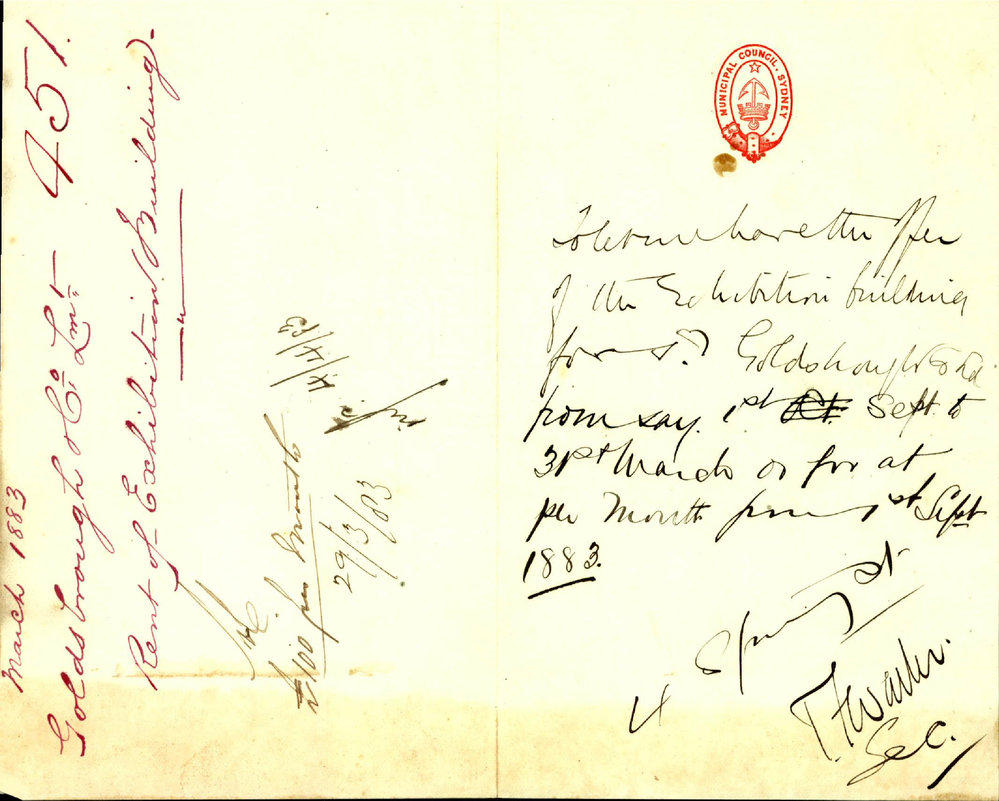 March 1883
Goldsbrough & Co Lmt 451.
Rent of Exhibition Building.
£100 per Month
29/3/83
4/4/83
MUNICIPAL COUNCIL, SYDNEY
have the offer
of the Exhibition building
for Goldsbrough & Co Ld.
from say 1st Oct. Sept to
31st March or for at
per Month from 1st Sept
1883.
4 Spring St
Sec.